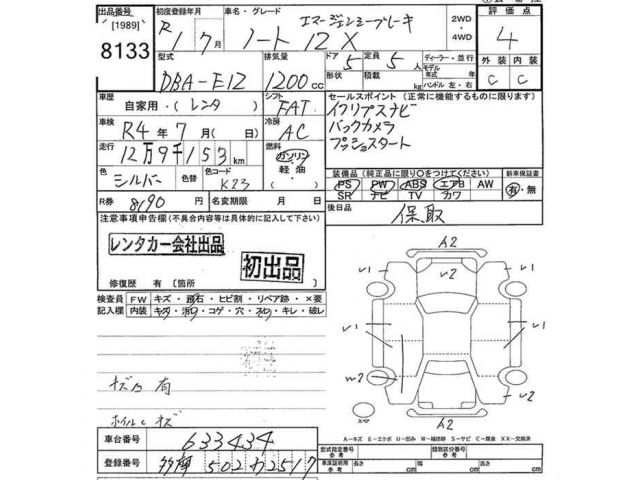 出品番号 初度登録年月 車名・グレード エマージェンシーブレーキ 2WD・4WD 評価点
[1989]
8133 R1年7月 ノート 12X 4
型式 排気量 ドア 定員 ディーラー・並行 外装 内装
DBA-E12 1200cc 5 5人 モデル年式 年
形状 積載 kg ハンドル 左・右 C C
車歴 自家用・(レンタ) シフト FAT セールスポイント (正常に機能するものに限ります)
車検 R4年7月(日) 冷房 AC
走行 12万9千153km 燃料 ガソリン・軽油
バックカメラ
プッシュスタート
色 シルバー 色替 色コード K23
装備品(純正品に限り○をつけてください) 新車保証書
PS PW ABS エアB AW 有・無
SR ナビ TV カワ
R券 8190円 名変期限 年 月 日 後日品 保、取
注意事項申告欄(不具合内容等は具体的に記入して下さい)
レンタカー会社出品
初出品
修復歴 有 [箇所
検査員記入欄 FW キズ・飛石・ヒビ割・リペア跡・×要
内装 キズ・汚れ・コゲ・穴・スレ・キレ・破レ
キズ凹 有
ホイルCキズ
車台番号 633434
登録番号 多摩502わ2517
A2
U1 U2 U1
U1 U1
W2 U2
A2
スペア
A-キズ E-エクボ U-凹み W-補修跡 S-サビ C-腐食 XX-交換済
型式指定番号 参考 類別区分番号 参考
車庫証明用 参考 長さ cm 幅 cm 高さ cm